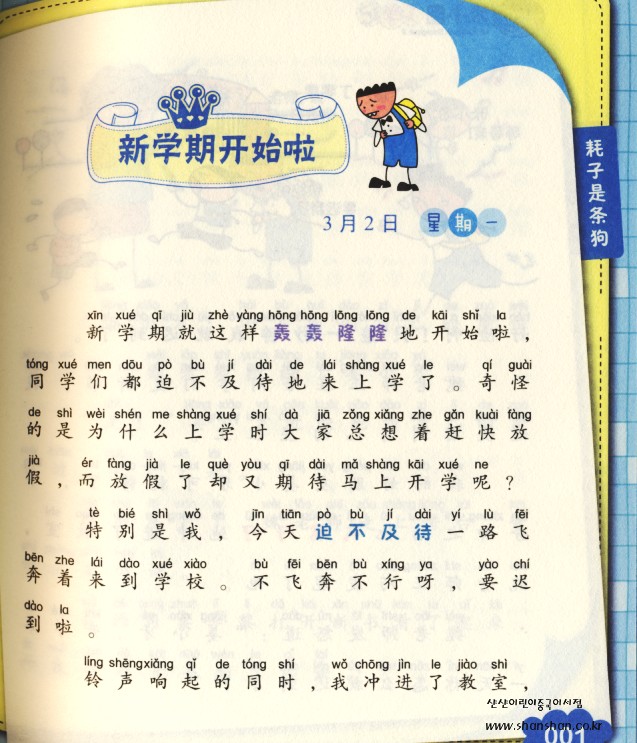 新学期开始啦
3月2日 星期一
耗子是条狗
xīn xué qī jiù zhè yàng hōng hōng lōng lōng de kāi shǐ la
新学期就这样轰轰隆隆地开始啦，
tóng xué men dōu pò bù jí dài de lái shàng xué le qí guài
同学们都迫不及待地来上学了。奇怪
de shì wèi shén me shàng xué shí dà jiā zǒng xiǎng zhe gǎn kuài fàng
的是为什么上学时大家总想着赶快放
jià ér fàng jià le què yòu qī dài mǎ shàng kāi xué ne
假，而放假了却又期待马上开学呢？
tè bié shì wǒ jīn tiān pò bù jí dài yí lù fēi
特别是我，今天迫不及待一路飞
bēn zhe lái dào xué xiào bù fēi bēn bù xíng ya yào chí
奔着来到学校。不飞奔不行呀，要迟
dào la
到啦。
líng shēng xiǎng qǐ de tóng shí wǒ chōng jìn le jiào shì
铃声响起的同时，我冲进了教室，
산산어린이중국어서점
www.shanshan.co.kr
001